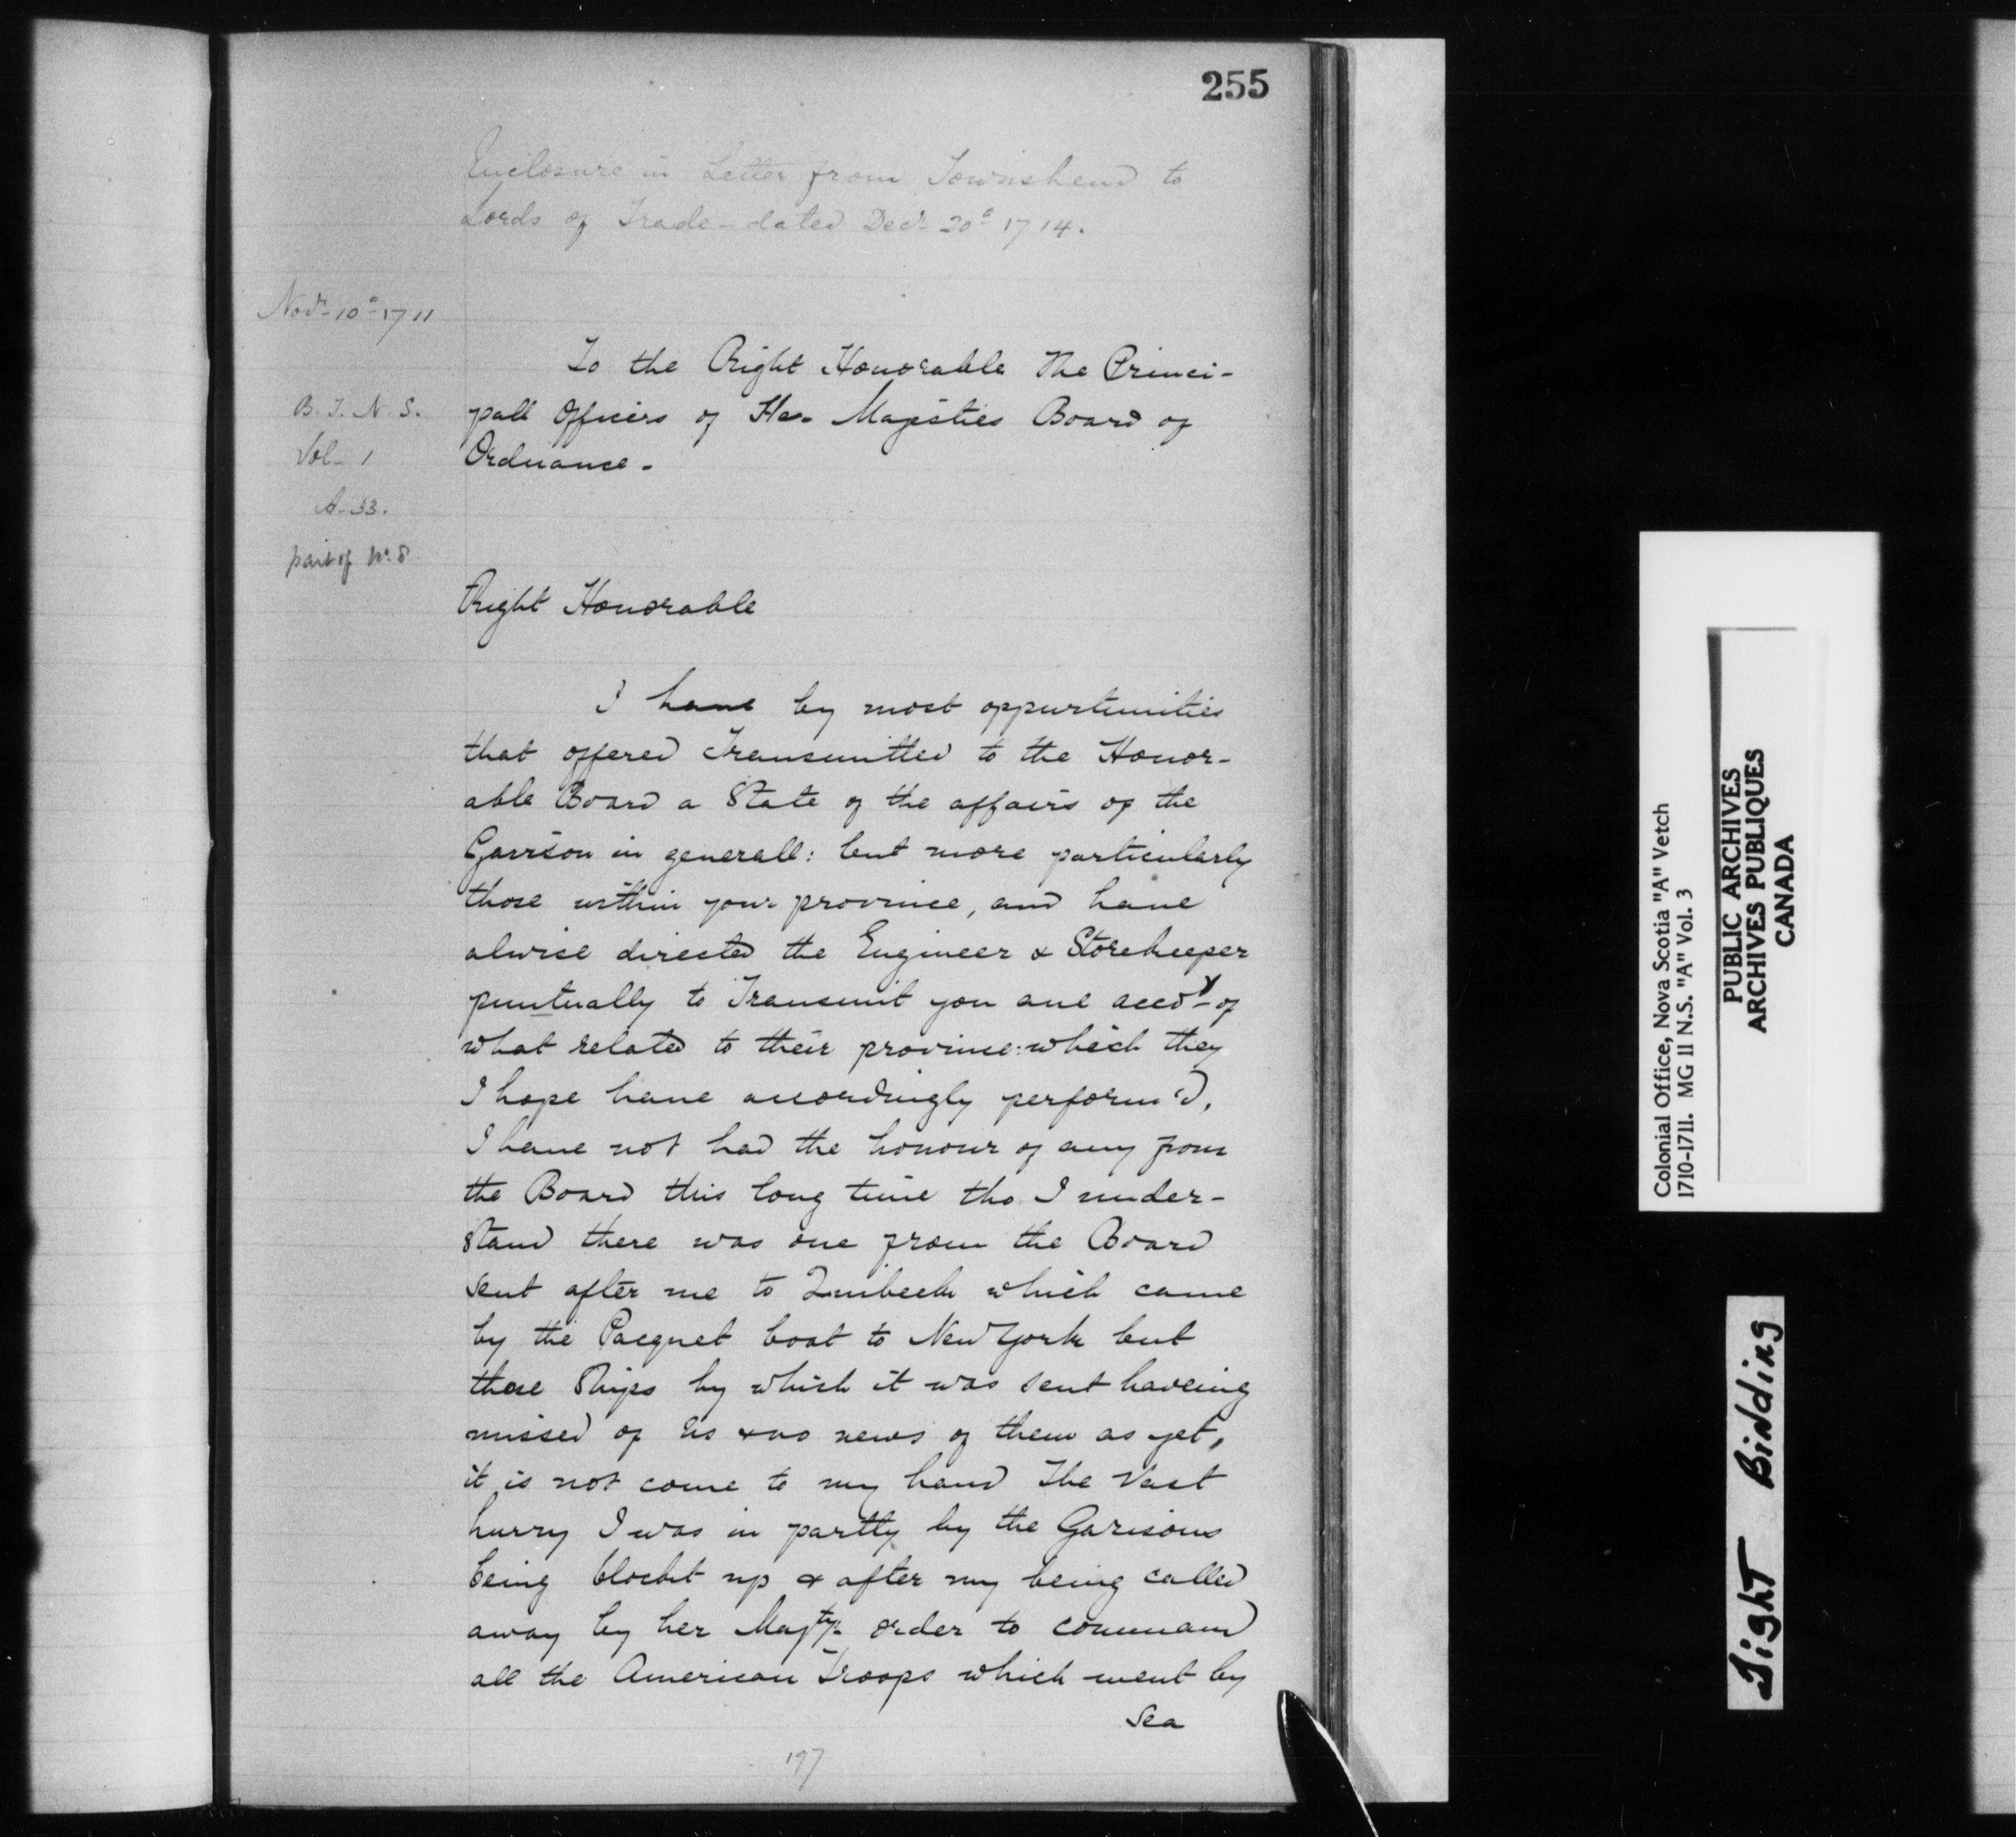 255
Enclosure in Letter from Townshend to
Lords of Trade - dated Decr 20th 1714.
Novr 10th 1711
B. T. N. S.
Vol. 1
A. 33.
part of No. 8
To the Right Honorable The Princi-
pall Officers of Her Majesties Board of
Ordnance.
Right Honorable
I have by most oppurtunities
that offered Transmitted to the Honor-
able Board a State of the affairs of the
Garrison in generall: but more particularly
those within your province, and have
alwise directed the Engineer & Storekeeper
puntually to Transmit you ane accot of
what related to their province: which they
I hope have accordingly perform'd,
I have not had the honour of any from
the Board this long time tho I under-
stand there was one from the Board
sent after me to Quibeck which came
by the Pacquet boat to New York but
those Ships by which it was sent haveing
missed of us & no news of them as yet,
it is not come to my hand The Vast
hurry I was in partly by the Garisons
being blockt up & after my being called
away by her Majtys order to command
all the American Troops which went by
Sea
197
Colonial Office, Nova Scotia "A" Vetch
1710-1711. MG 11 N.S. "A" Vol. 3
PUBLIC ARCHIVES
ARCHIVES PUBLIQUES
CANADA
Tight Binding